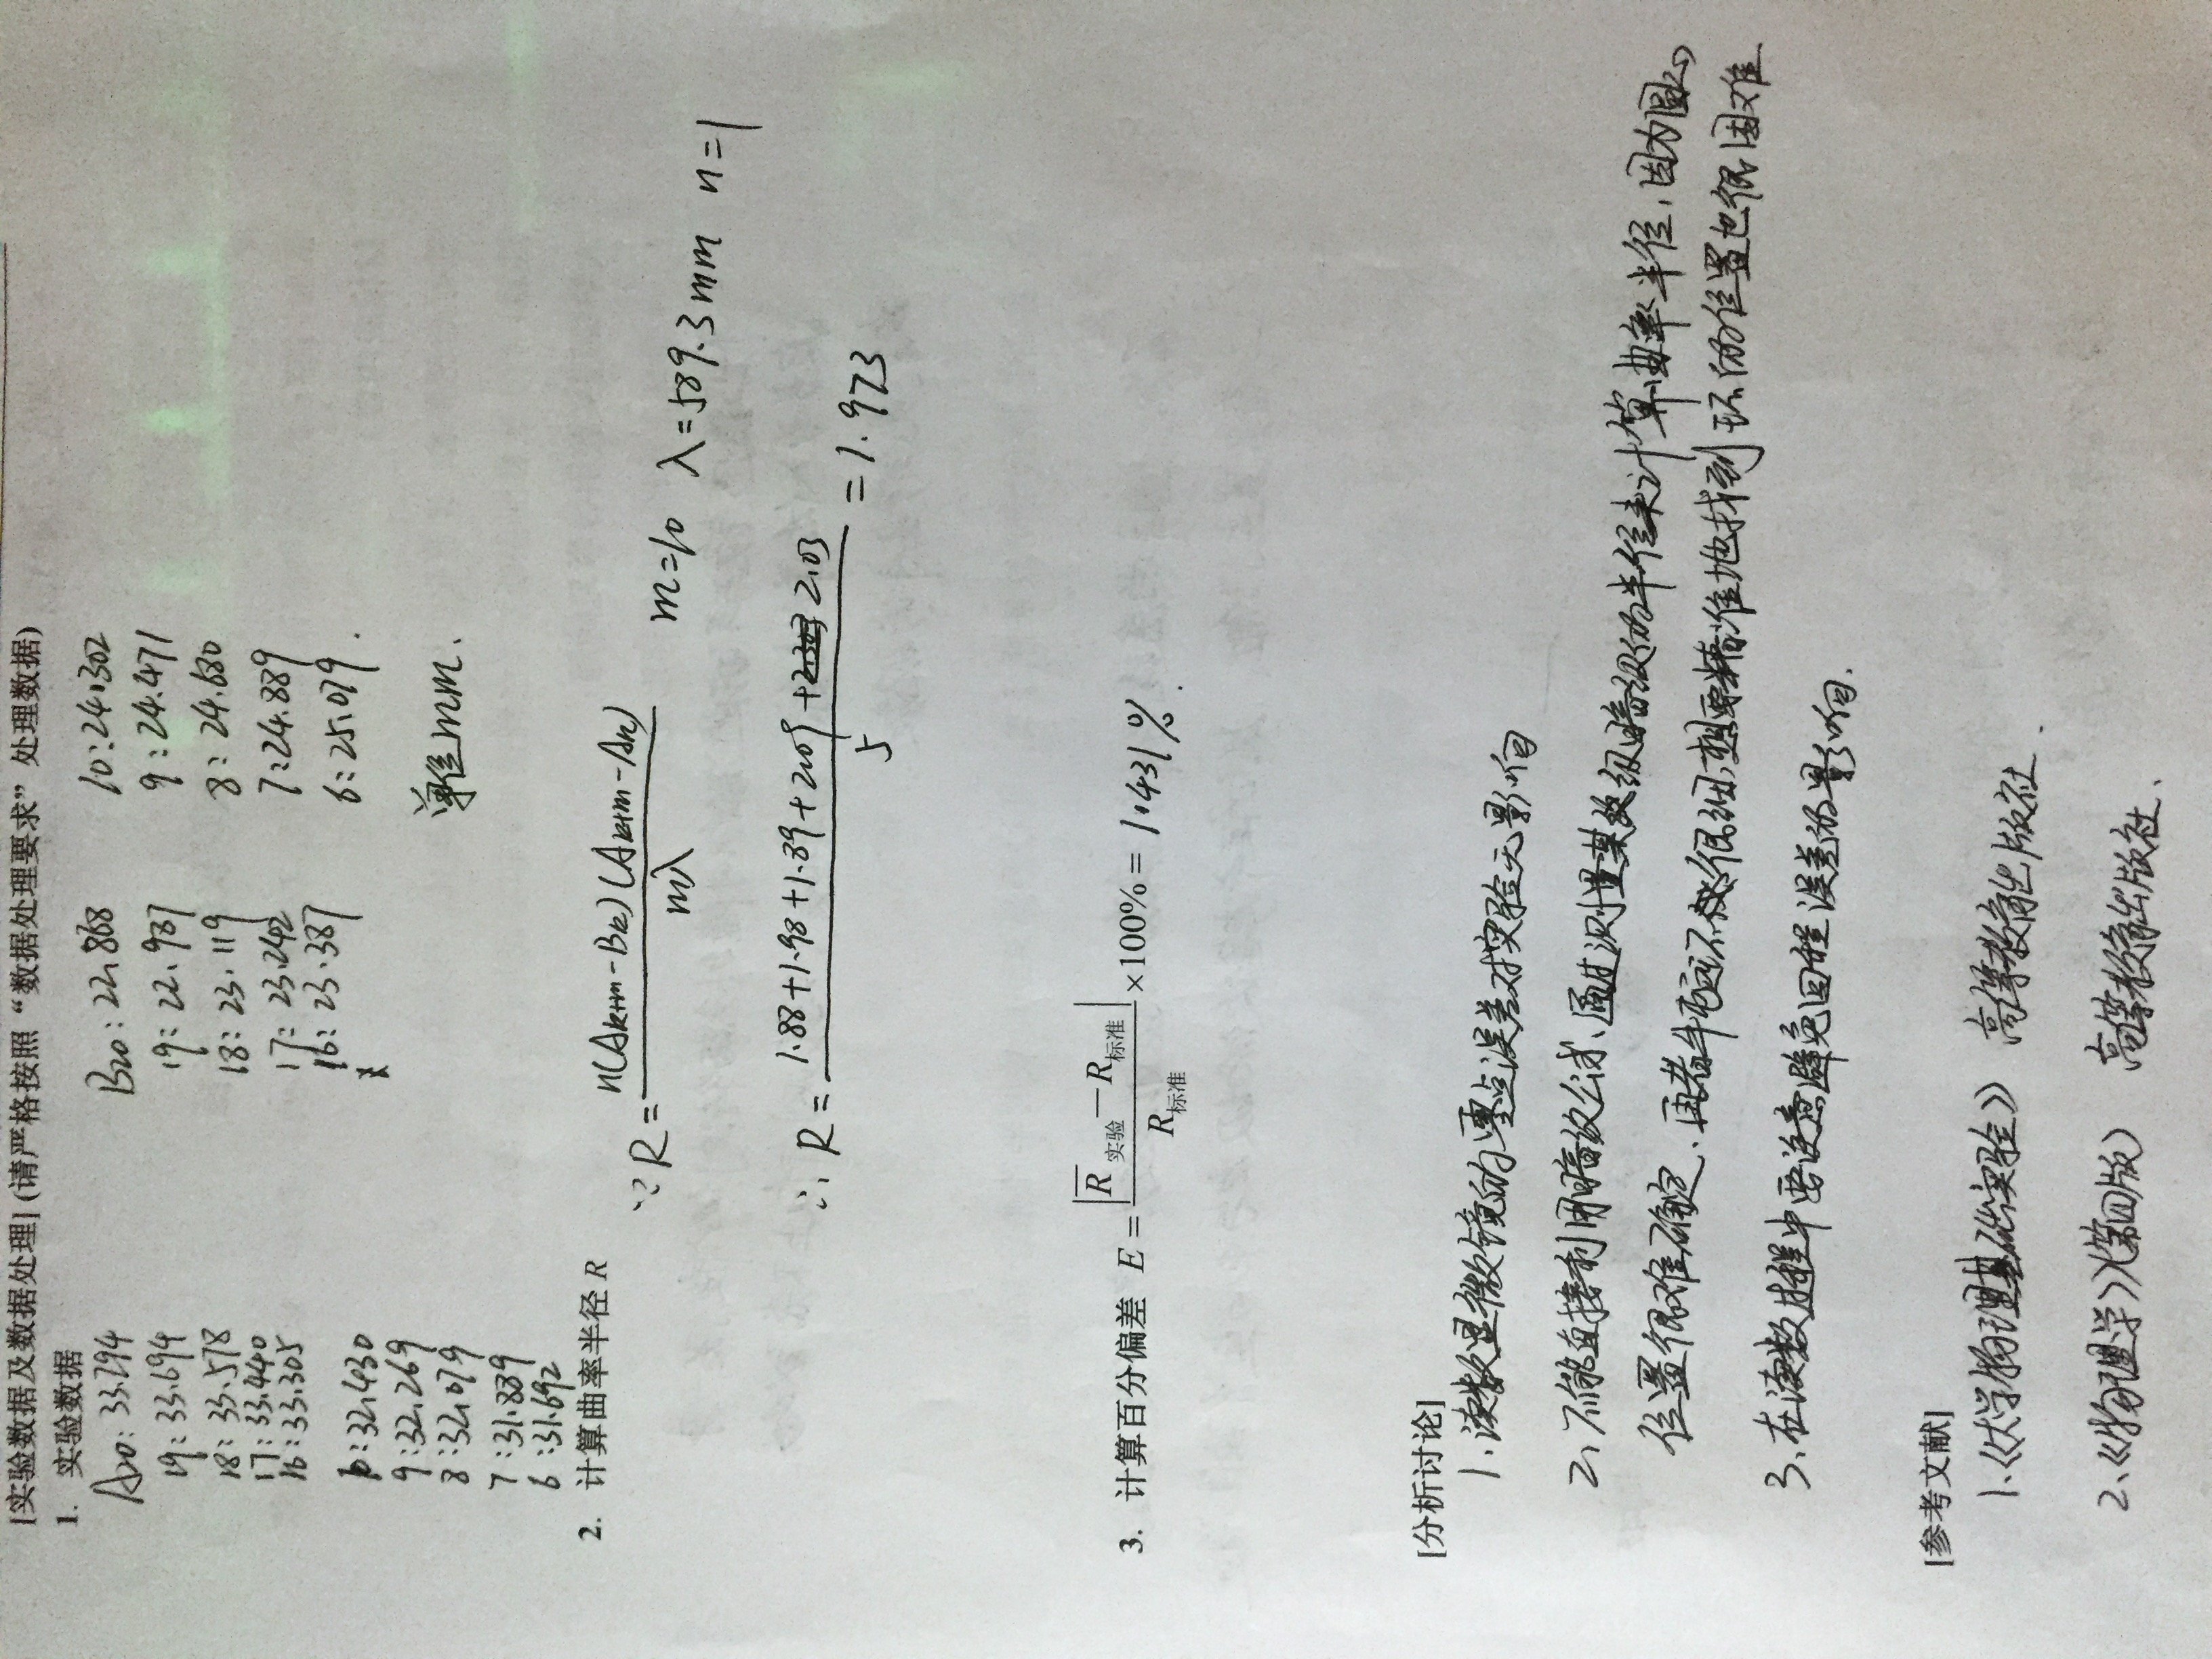 [实验数据及数据处理] (请严格按照“数据处理要求”处理数据)
1. 实验数据
A20: 33.794
19: 33.694
18: 33.578
17: 33.440
16: 33.305
10: 32.430
9: 32.269
8: 32.079
7: 31.889
6: 31.692
B20: 22.868
19: 22.987
18: 23.119
17: 23.242
16: 23.387
10: 24.302
9: 24.471
8: 24.680
7: 24.889
6: 25.079.
单位mm.
2. 计算曲率半径 R
∵ R = n(Ak+m-Bk)(Ak+m-Ak) / mλ  m=10 λ=589.3mm n=1
∴ R = 1.88+1.98+1.89+2.09+2.03 / 5 = 1.973
3. 计算百分偏差 E = |R̅实验 − R标准| / R标准 ×100% = 1.431%.
[分析讨论]
1、读数显微镜的零点误差对实验无影响
2、不能直接利用暗纹公式、通过测量某数级暗级的半径来计算曲率半径,因为圆心
位置很难确定、再者牛顿环很细,想要精准地找到环的位置也很困难
3、在读数过程中要注意避免回程误差的影响.
[参考文献]
1、《大学物理基础实验》 高等教育出版社.
2、《物理学》(第四版) 高等教育出版社.